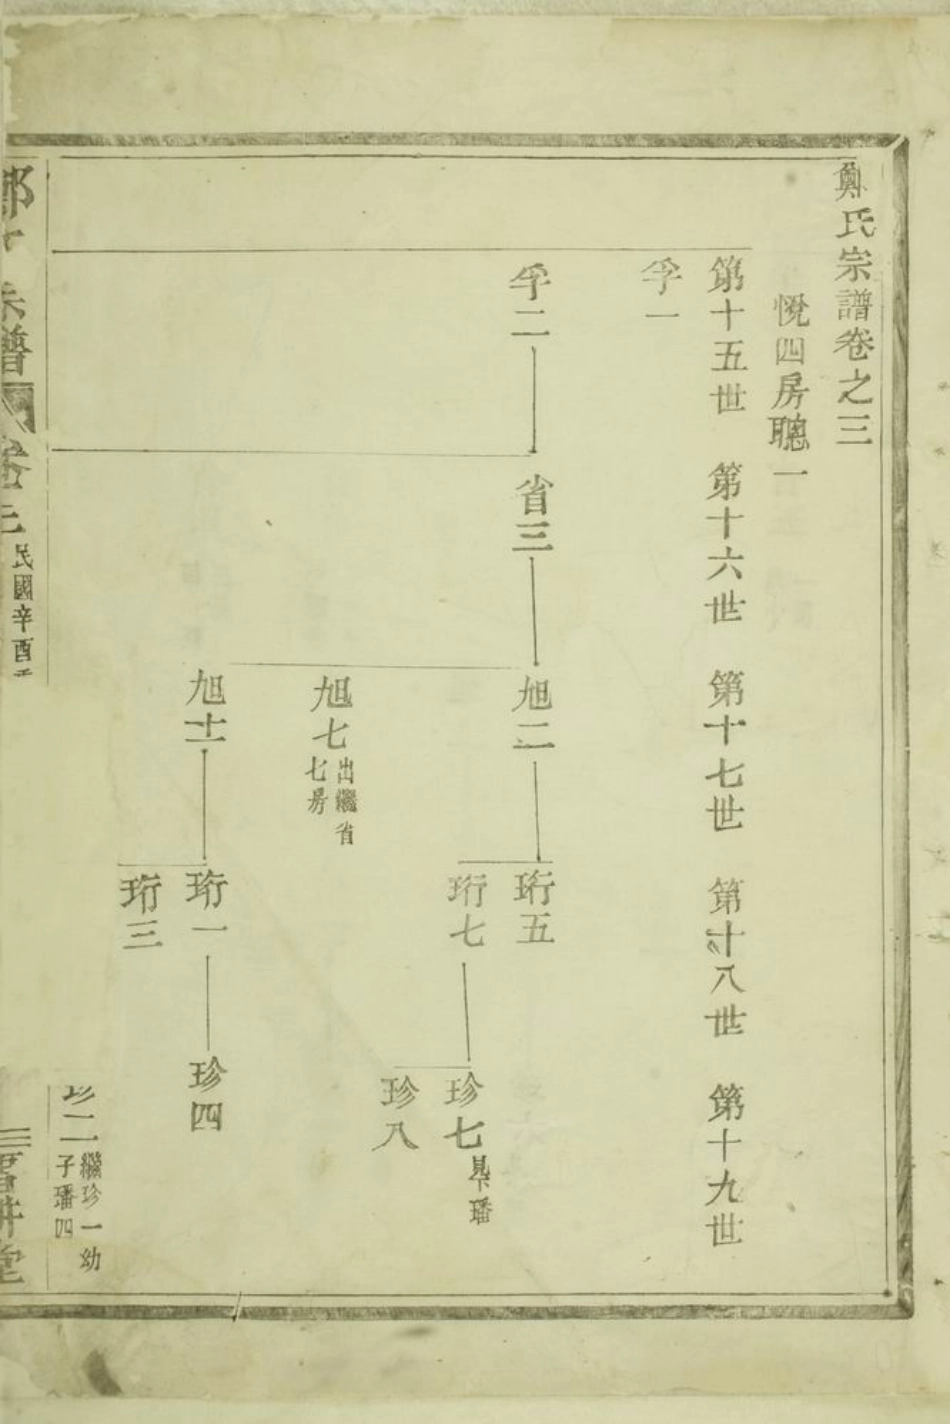 鄭氏宗譜卷之三
悅四房聰一
第十五世 第十六世 第十七世 第十八世 第十九世
孚一
孚二
省三
旭二
珩五
珩七
珍七
見下璠
珍八
旭七
出繼省
七房
旭十二
珩一
珍四
珩三
珍二
繼珍一幼
子璠四
宗譜
卷三
民國辛酉
三